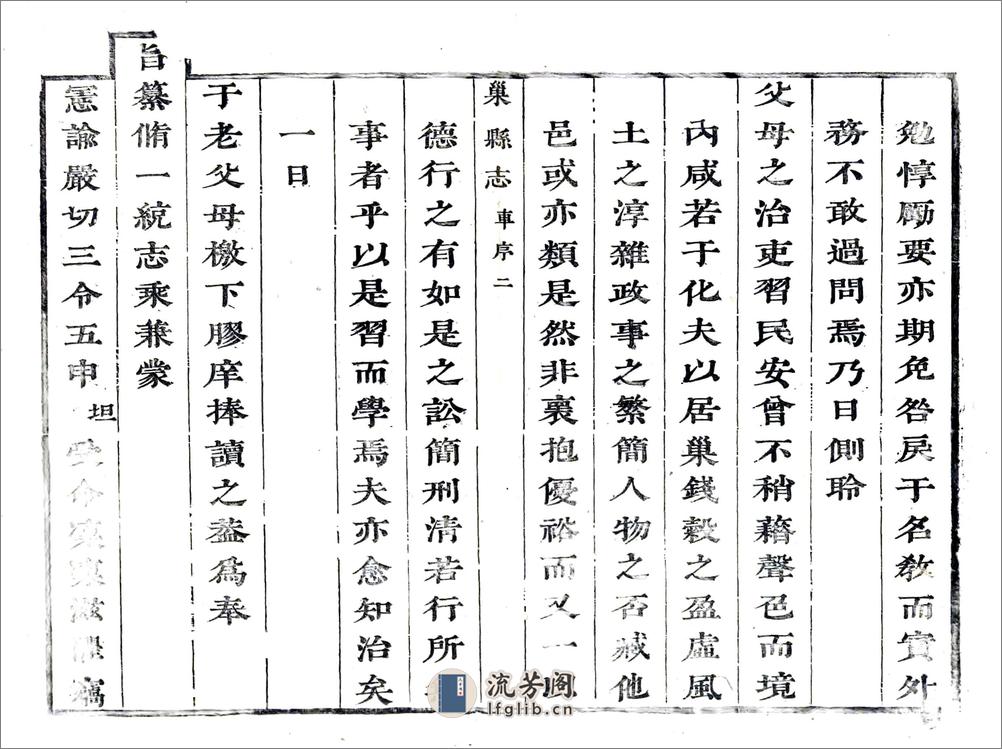 勉惇勵要亦期免咎戾于名敎而實外
務不敢過問焉乃日側聆
父母之治吏習民安曾不稍藉聲色而境
內咸若于化夫以居巢錢穀之盈虛風
土之淳雜政事之繁簡人物之否臧他
邑或亦類是然非裏抱優裕而又一
巢縣志 車序二
德行之有如是之訟簡刑清若行所
事者乎以是習而學焉夫亦愈知治矣
一日
于老父母檄下膠庠捧讀之葢爲奉
旨纂脩一統志乘兼蒙
憲諭嚴切三令五申坦受令
流芳阁
lfglib.cn